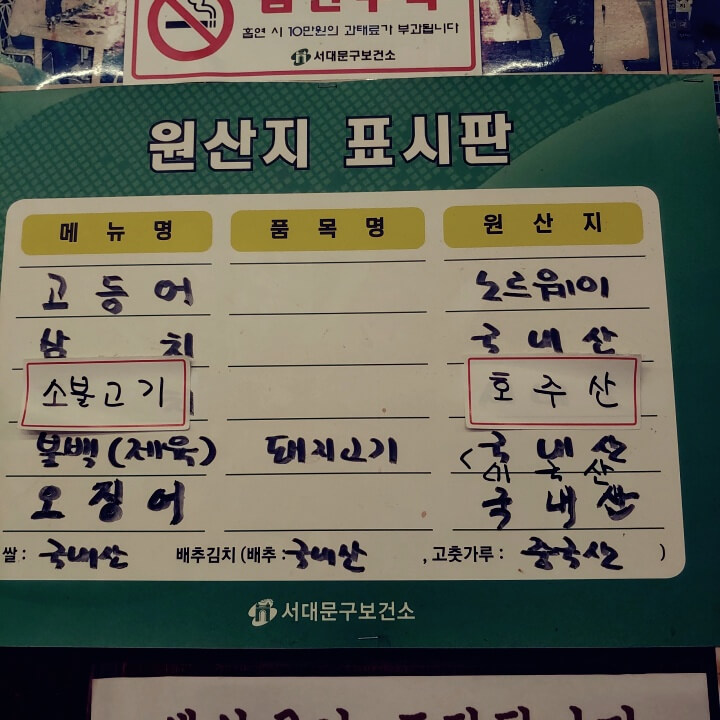 흡연 시 10만원의 과태료가 부과됩니다
서대문구보건소
원산지 표시판
메뉴명 품목명 원산지
고등어 노르웨이
삼치 국내산
소불고기 호주산
불백(제육) 돼지고기 국내산
오징어 국내산
쌀 : 국내산 배추김치 (배추 : 국내산 , 고춧가루 : 중국산 )
서대문구보건소